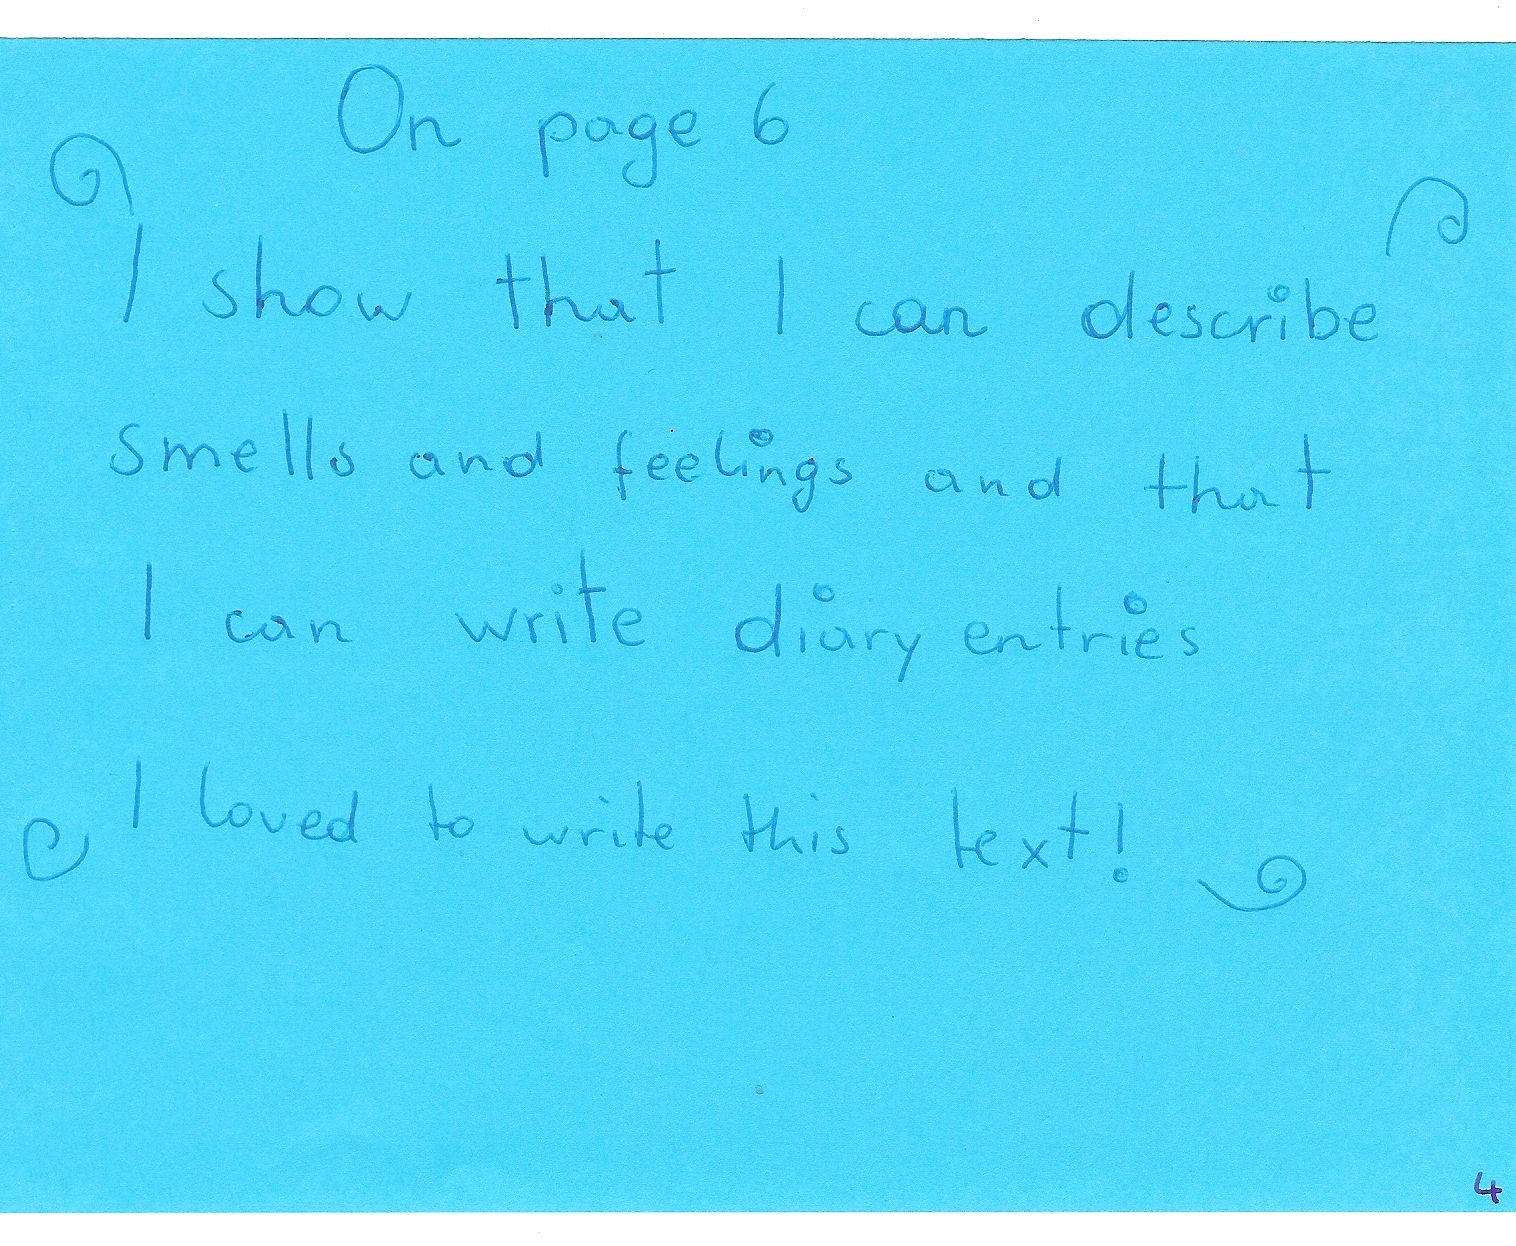 On page 6
I show that I can describe
smells and feelings and that
I can write diary entries
I loved to write this text!
4